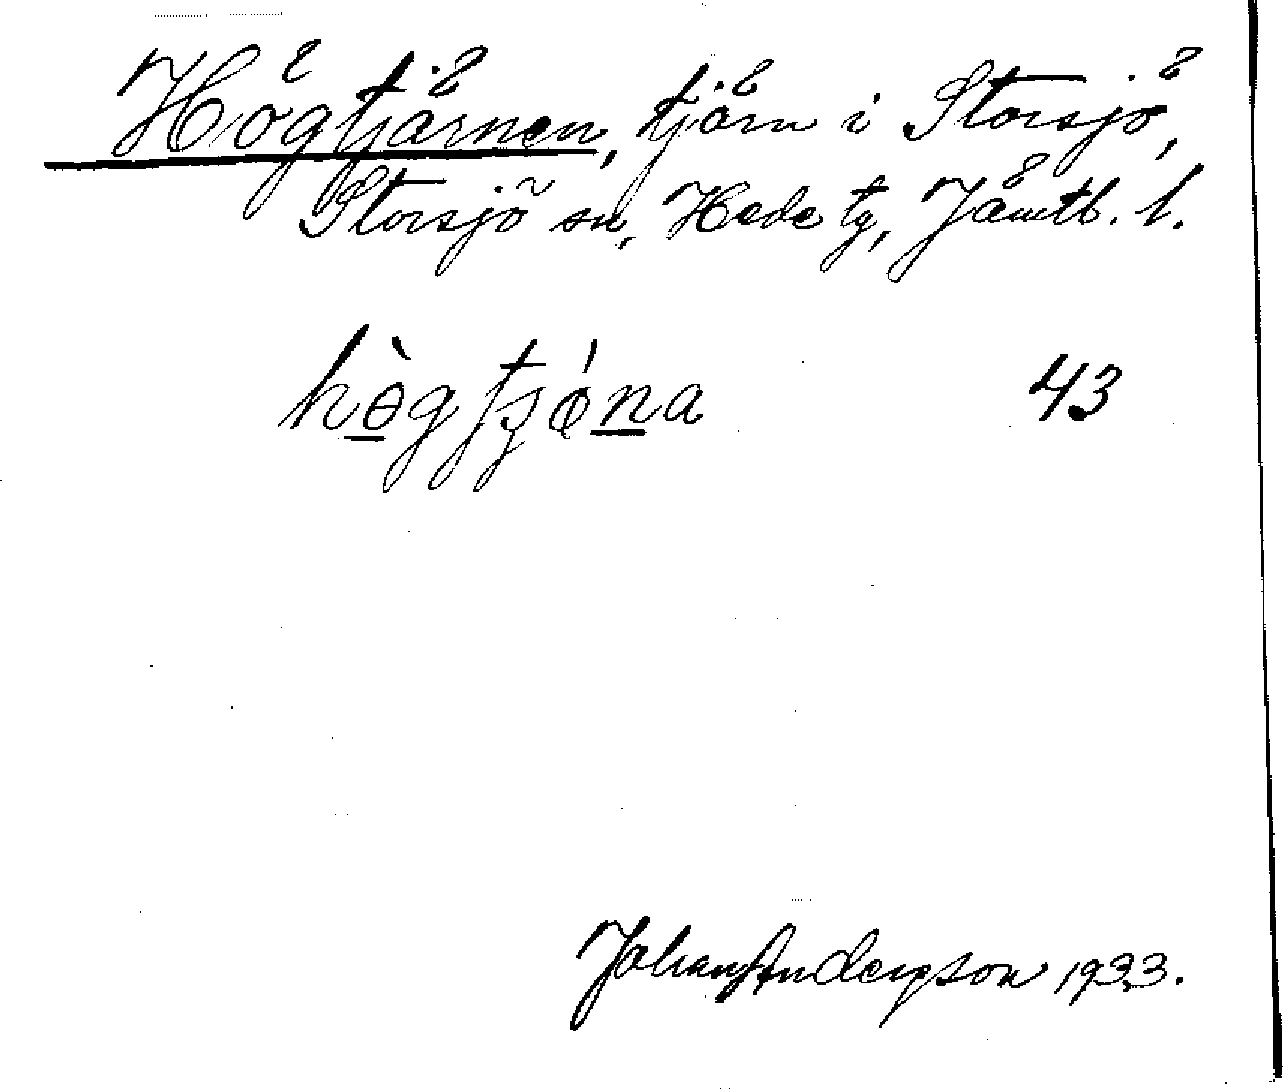 Högtjärnen, tjärn i Storsjö,
Storsjö sn, Hede tg, Jämtl. l.
hò̠gtʂǿn̠a 43
Johan Anderson 1933.